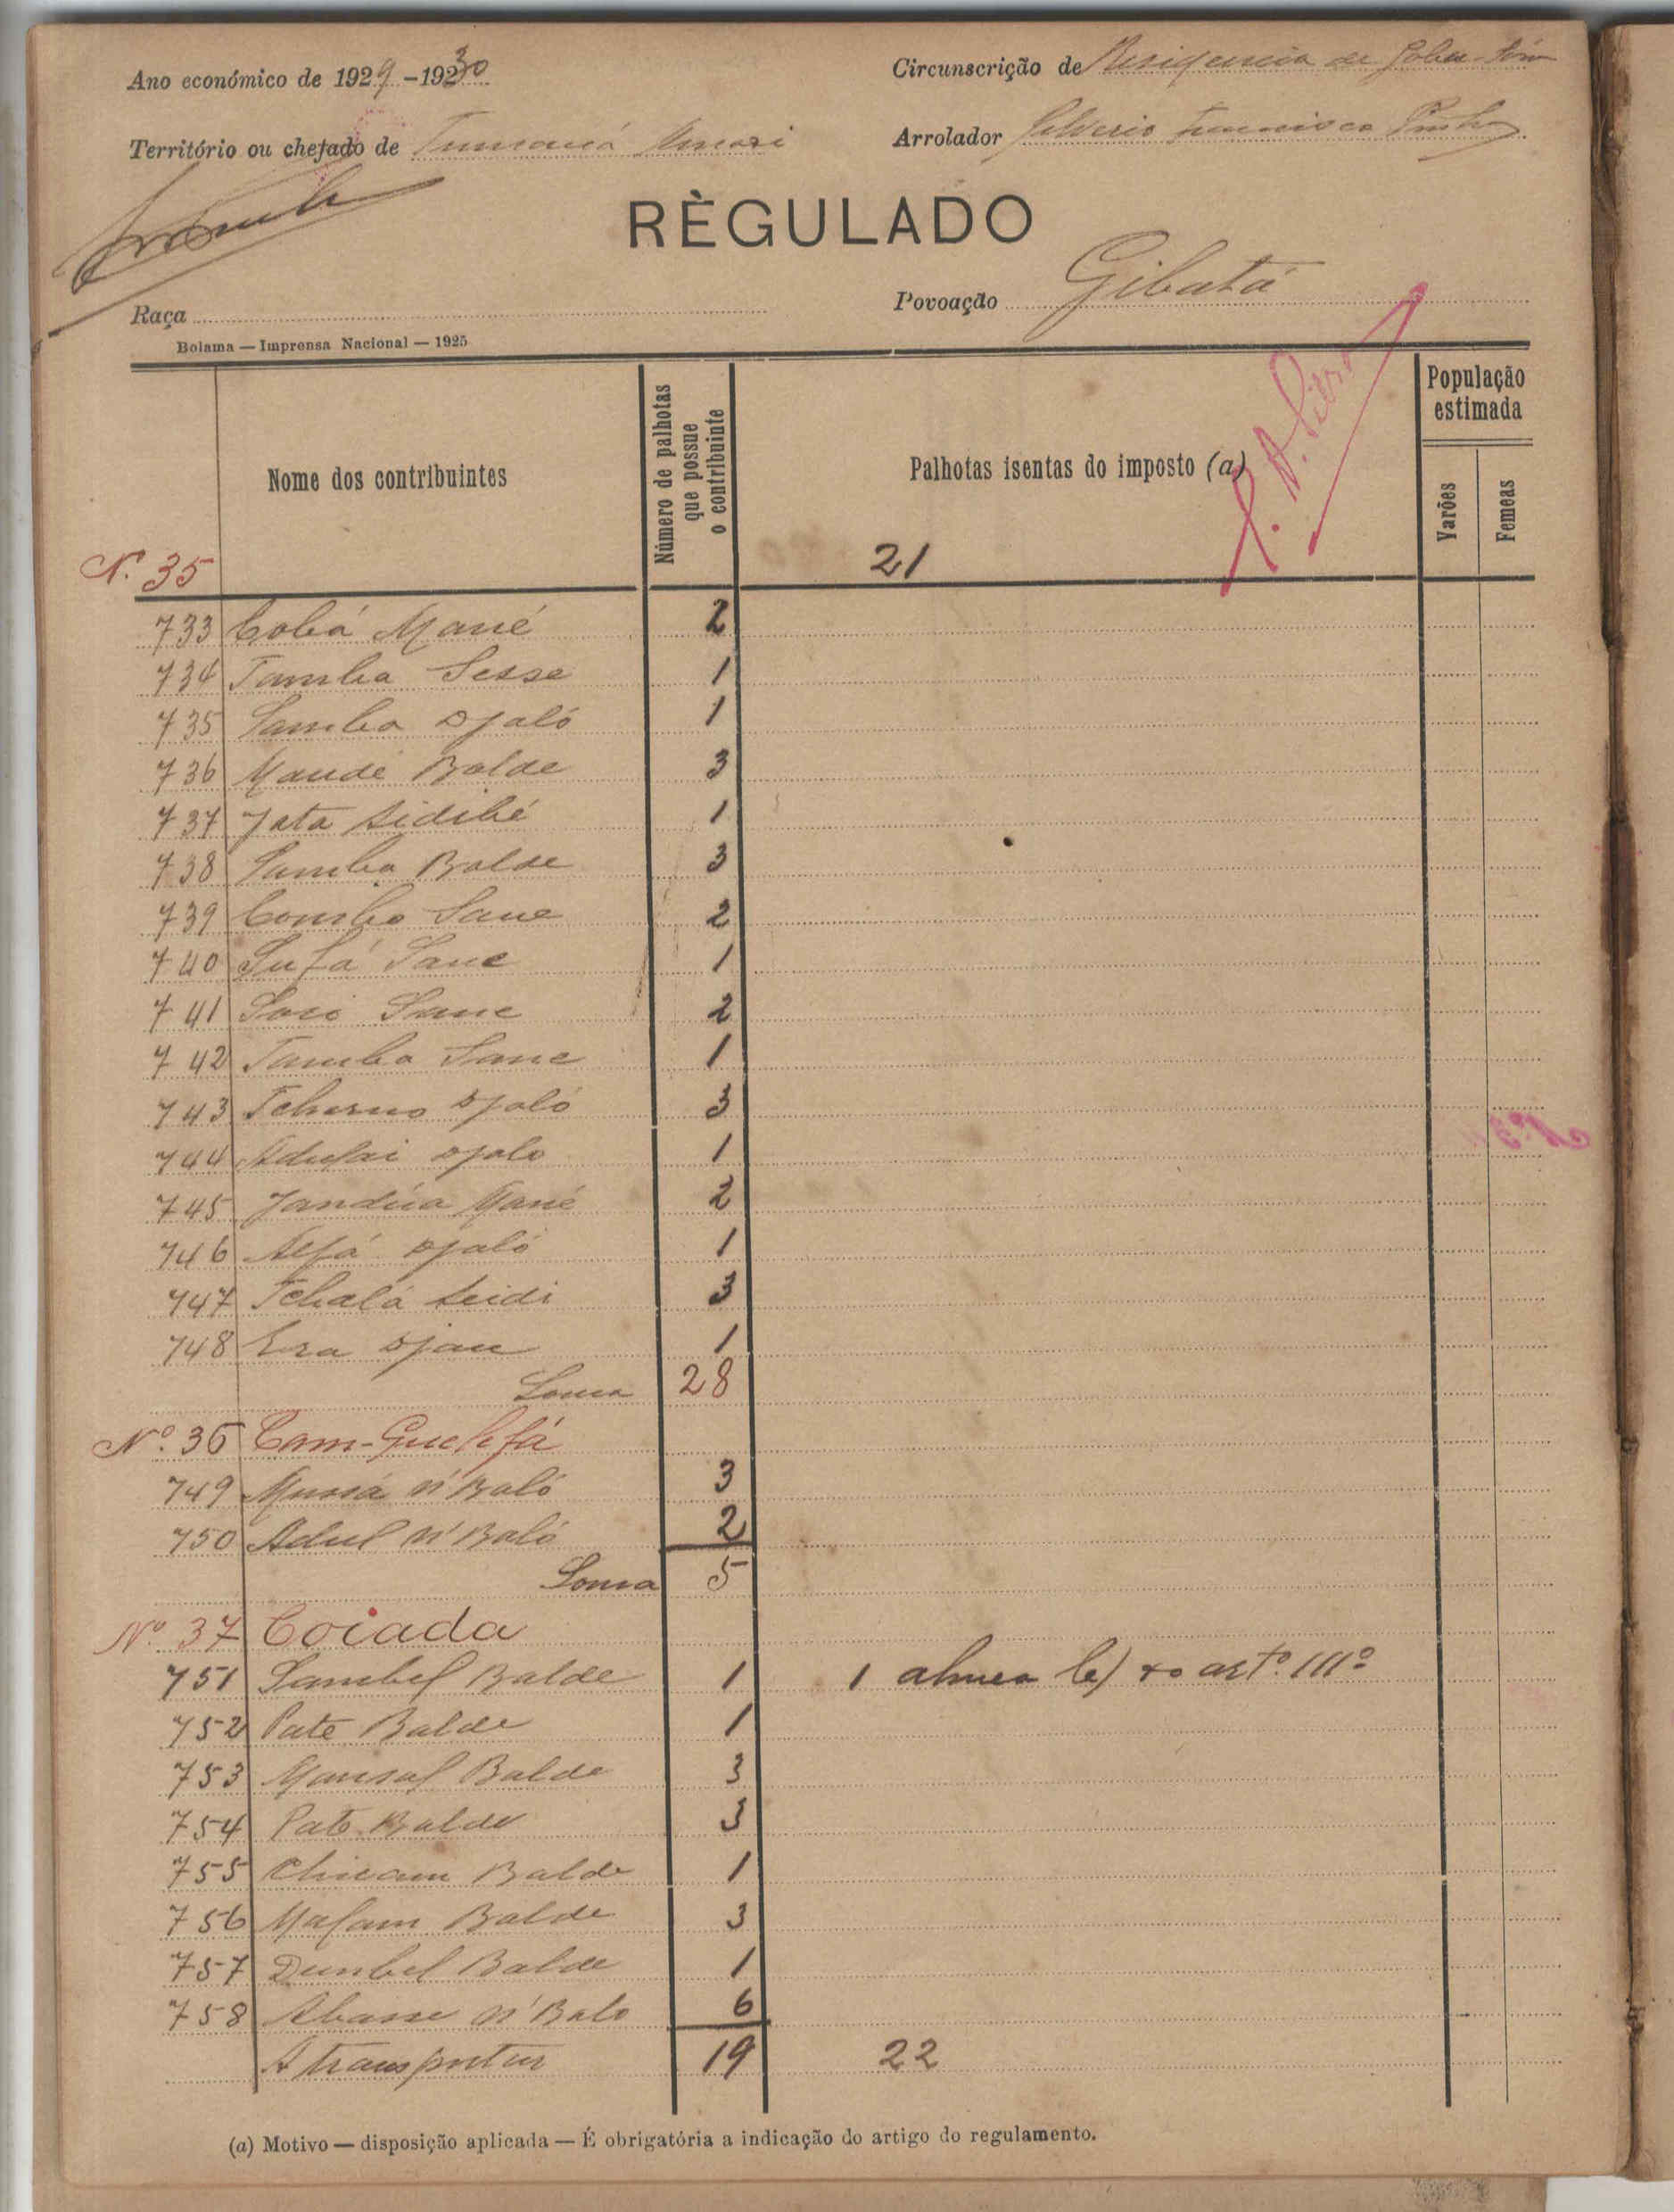 Ano económico de 1929-1930
Circunscrição de Residencia de
Território ou chefado de Tumaná
Arrolador Silverio Francisco Pinto
RÈGULADO
Raça
Povoação Gibatá
Bolama — Imprensa Nacional — 1925
Nome dos contribuintes
Número de palhotas que possue o contribuinte
Palhotas isentas do imposto (a)
População estimada
Varões
Femeas
N.º 35
21
733 Cobá Mané 2
734 Tamba Sesse 1
735 Samba Djaló 1
736 Maudé Balde 3
737 Jata Sidibé 1
738 Samba Balde 3
739 Combo Sane 2
740 Sufá Sane 1
741 Sori Sane 2
742 Tamba Sane 1
743 Tcherno Djaló 3
744 Adulai Djalo 1
745 Mané 2
746 Alfá Djaló 1
747 Tchalá Seidi 3
748 Djau 1
Soma 28
Nº. 36 Cam-Guelefá
749 Mussá N'Baló 3
750 Adul N'Baló 2
Soma 5
Nº 37 Coiada
751 Sambel Balde 1 1 artº. 111º
752 Pate Balde 1
753 Balde 3
754 Pate Balde 3
755 Balde 1
756 Malam Balde 3
757 Dembel Balde 1
758 Abasse N'Balo 6
A transportar 19 22
(a) Motivo — disposição aplicada — É obrigatória a indicação do artigo do regulamento.